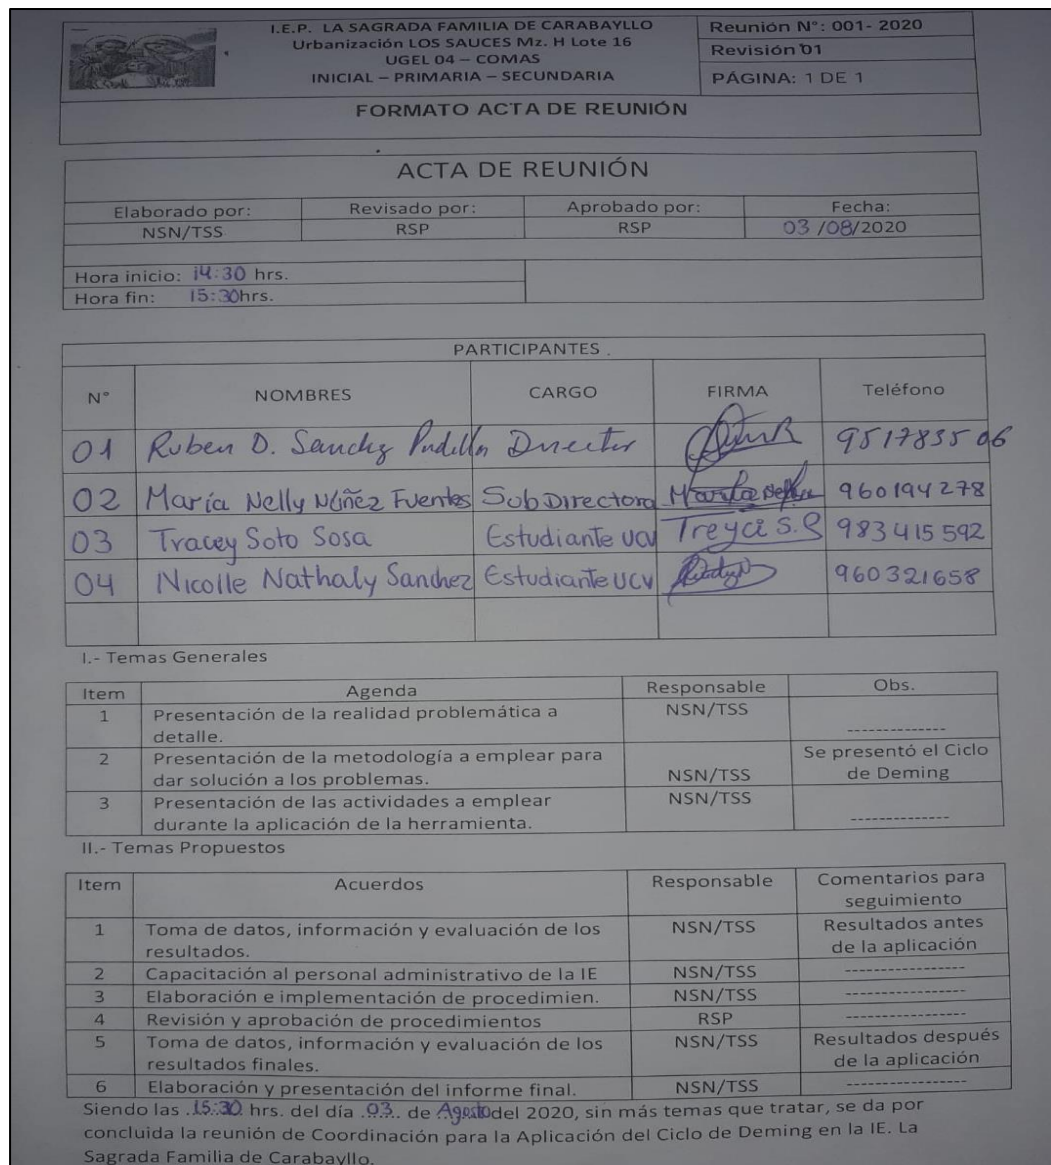 I.E.P. LA SAGRADA FAMILIA DE CARABAYLLO
Urbanización LOS SAUCES Mz. H Lote 16
UGEL 04 – COMAS
INICIAL – PRIMARIA – SECUNDARIA
Reunión N°: 001- 2020
Revisión 01
PÁGINA: 1 DE 1
FORMATO ACTA DE REUNIÓN
ACTA DE REUNIÓN
Elaborado por: Revisado por: Aprobado por: Fecha:
NSN/TSS RSP RSP 03 /08/2020
Hora inicio: 14:30 hrs.
Hora fin: 15:30hrs.
PARTICIPANTES
N° NOMBRES CARGO FIRMA Teléfono
01 Ruben D. Sanchz Padilla Director 951783506
02 María Nelly Núñez Fuentes SubDirectora María Nelly 960194278
03 Tracey Soto Sosa Estudiante UCV Treyci S.S 983415592
04 Nicolle Nathaly Sanchez Estudiante UCV 960321658
I.- Temas Generales
Item Agenda Responsable Obs.
1 Presentación de la realidad problemática a NSN/TSS
detalle. --------------
2 Presentación de la metodología a emplear para Se presentó el Ciclo
dar solución a los problemas. NSN/TSS de Deming
3 Presentación de las actividades a emplear NSN/TSS
durante la aplicación de la herramienta. --------------
II.- Temas Propuestos
Item Acuerdos Responsable Comentarios para
seguimiento
1 Toma de datos, información y evaluación de los NSN/TSS Resultados antes
resultados. de la aplicación
2 Capacitación al personal administrativo de la IE NSN/TSS -----------------
3 Elaboración e implementación de procedimien. NSN/TSS -----------------
4 Revisión y aprobación de procedimientos RSP -----------------
5 Toma de datos, información y evaluación de los NSN/TSS Resultados después
resultados finales. de la aplicación
6 Elaboración y presentación del informe final. NSN/TSS -----------------
Siendo las .15:30. hrs. del día .03.. de .Agosto del 2020, sin más temas que tratar, se da por
concluida la reunión de Coordinación para la Aplicación del Ciclo de Deming en la IE. La
Sagrada Familia de Carabayllo.